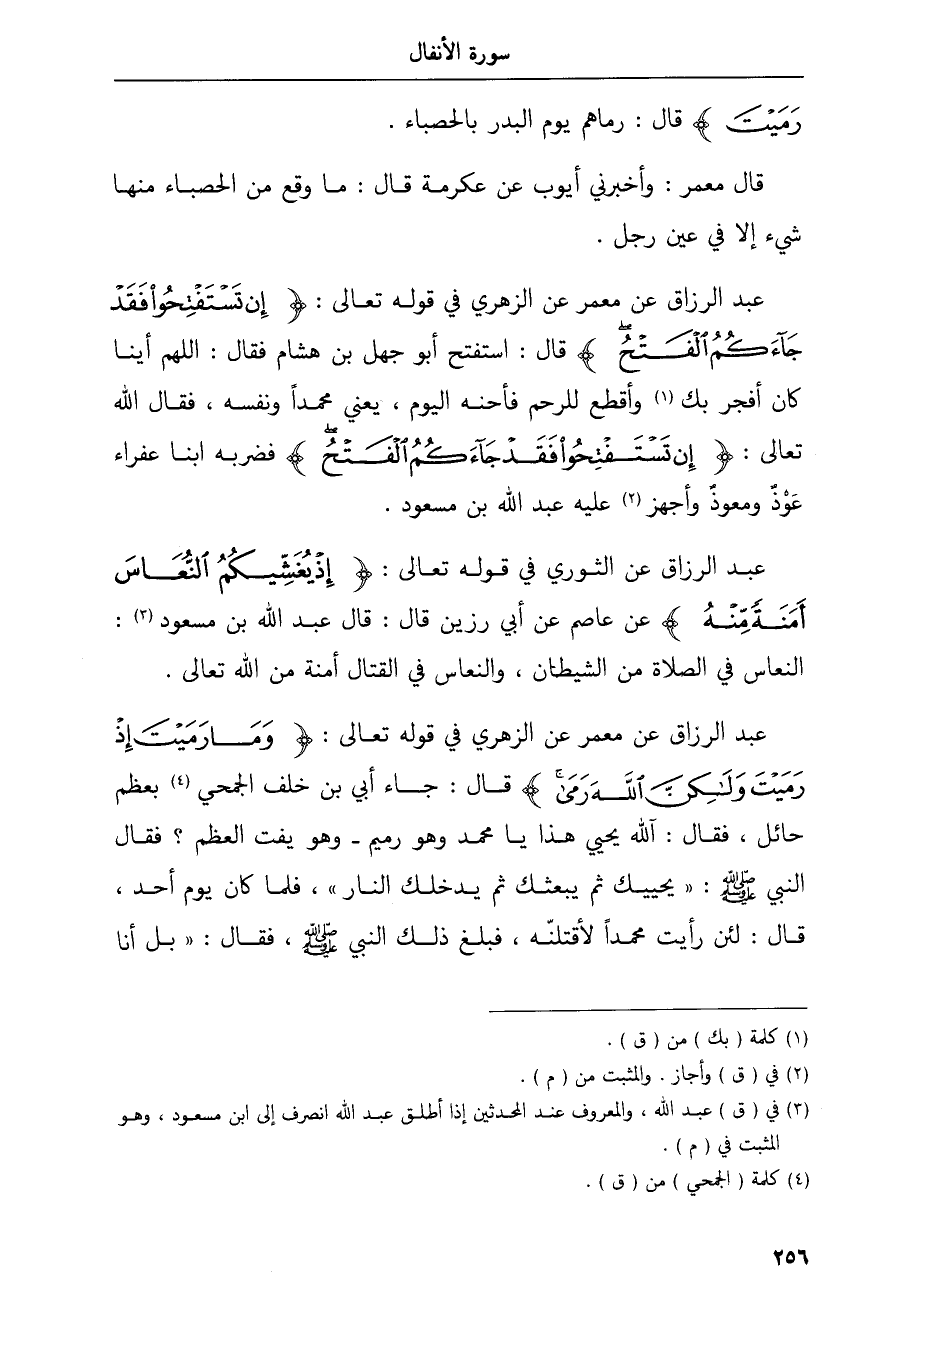 سورة الأنفال
رَمَيْتَ ﴾ قال : رماهم يوم البدر بالحصباء .
قال معمر : وأخبرني أيوب عن عكرمة قال : ما وقع من الحصباء منها
شيء إلا في عين رجل .
عبد الرزاق عن معمر عن الزهري في قوله تعالى : ﴿ إِن تَسْتَفْتِحُواْ فَقَدْ
جَآءَكُمُ ٱلْفَتْحُ ۖ ﴾ قال : استفتح أبو جهل بن هشام فقال : اللهم أينا
كان أفجر بك (١) وأقطع للرحم فأحنه اليوم ، يعني محمداً ونفسه ، فقال الله
تعالى : ﴿ إِن تَسْتَفْتِحُواْ فَقَدْ جَآءَكُمُ ٱلْفَتْحُ ۖ ﴾ فضربه ابنا عفراء
عَوْذٌ ومعوذٌ وأجهز (٢) عليه عبد الله بن مسعود .
عبد الرزاق عن الثوري في قوله تعالى : ﴿ إِذْ يُغَشِّيكُمُ ٱلنُّعَاسَ
أَمَنَةً مِّنْهُ ﴾ عن عاصم عن أبي رزين قال : قال عبد الله بن مسعود (٣) :
النعاس في الصلاة من الشيطان ، والنعاس في القتال أمنة من الله تعالى .
عبد الرزاق عن معمر عن الزهري في قوله تعالى : ﴿ وَمَا رَمَيْتَ إِذْ
رَمَيْتَ وَلَٰكِنَّ ٱللَّهَ رَمَىٰ ۚ ﴾ قال : جاء أبي بن خلف الجمحي (٤) بعظم
حائل ، فقال : آلله يحيي هذا يا محمد وهو رميم ـ وهو يفت العظم ؟ فقال
النبي ﷺ : « يحييك ثم يبعثك ثم يدخلك النار » ، فلما كان يوم أحد ،
قال : لئن رأيت محمداً لأقتلنّه ، فبلغ ذلك النبي ﷺ ، فقال : « بل أنا
(١) كلمة ( بك ) من ( ق ) .
(٢) في ( ق ) وأجاز . والمثبت من ( م ) .
(٣) في ( ق ) عبد الله ، والمعروف عند المحدثين إذا أطلق عبد الله انصرف إلى ابن مسعود ، وهو
المثبت في ( م ) .
(٤) كلمة ( الجمحي ) من ( ق ) .
٢٥٦